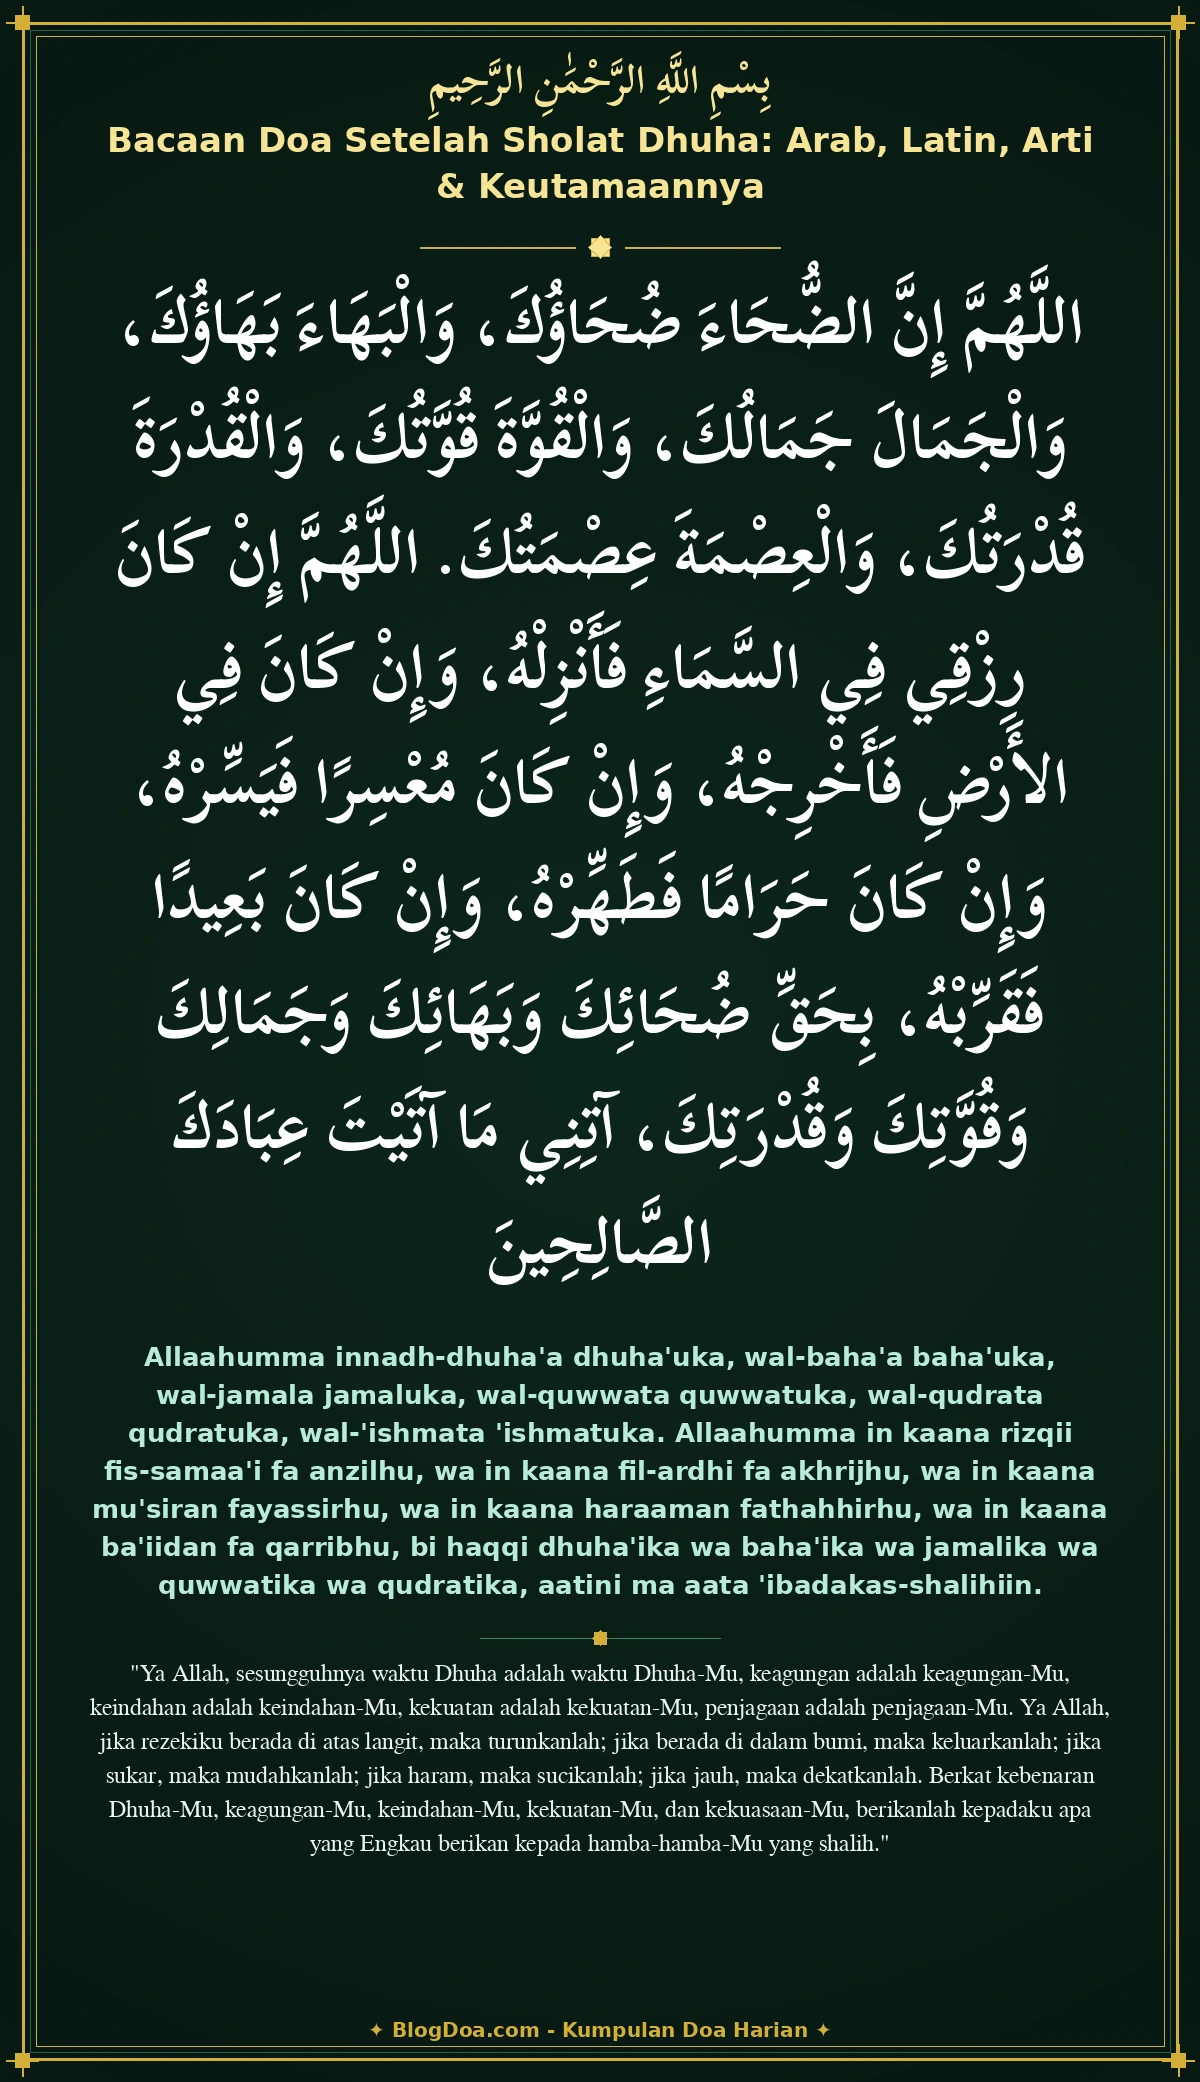 بِسْمِ اللَّهِ الرَّحْمَٰنِ الرَّحِيمِ
Bacaan Doa Setelah Sholat Dhuha: Arab, Latin, Arti
& Keutamaannya
اللَّهُمَّ إِنَّ الضُّحَاءَ ضُحَاؤُكَ، وَالْبَهَاءَ بَهَاؤُكَ،
وَالْجَمَالَ جَمَالُكَ، وَالْقُوَّةَ قُوَّتُكَ، وَالْقُدْرَةَ
قُدْرَتُكَ، وَالْعِصْمَةَ عِصْمَتُكَ. اللَّهُمَّ إِنْ كَانَ
رِزْقِي فِي السَّمَاءِ فَأَنْزِلْهُ، وَإِنْ كَانَ فِي
الأَرْضِ فَأَخْرِجْهُ، وَإِنْ كَانَ مُعْسِرًا فَيَسِّرْهُ،
وَإِنْ كَانَ حَرَامًا فَطَهِّرْهُ، وَإِنْ كَانَ بَعِيدًا
فَقَرِّبْهُ، بِحَقِّ ضُحَائِكَ وَبَهَائِكَ وَجَمَالِكَ
وَقُوَّتِكَ وَقُدْرَتِكَ، آتِنِي مَا آتَيْتَ عِبَادَكَ
الصَّالِحِينَ
Allaahumma innadh-dhuha'a dhuha'uka, wal-baha'a baha'uka,
wal-jamala jamaluka, wal-quwwata quwwatuka, wal-qudrata
qudratuka, wal-'ishmata 'ishmatuka. Allaahumma in kaana rizqii
fis-samaa'i fa anzilhu, wa in kaana fil-ardhi fa akhrijhu, wa in kaana
mu'siran fayassirhu, wa in kaana haraaman fathahhirhu, wa in kaana
ba'iidan fa qarribhu, bi haqqi dhuha'ika wa baha'ika wa jamalika wa
quwwatika wa qudratika, aatini ma aata 'ibadakas-shalihiin.
"Ya Allah, sesungguhnya waktu Dhuha adalah waktu Dhuha-Mu, keagungan adalah keagungan-Mu,
keindahan adalah keindahan-Mu, kekuatan adalah kekuatan-Mu, penjagaan adalah penjagaan-Mu. Ya Allah,
jika rezekiku berada di atas langit, maka turunkanlah; jika berada di dalam bumi, maka keluarkanlah; jika
sukar, maka mudahkanlah; jika haram, maka sucikanlah; jika jauh, maka dekatkanlah. Berkat kebenaran
Dhuha-Mu, keagungan-Mu, keindahan-Mu, kekuatan-Mu, dan kekuasaan-Mu, berikanlah kepadaku apa
yang Engkau berikan kepada hamba-hamba-Mu yang shalih."
✦ BlogDoa.com - Kumpulan Doa Harian ✦